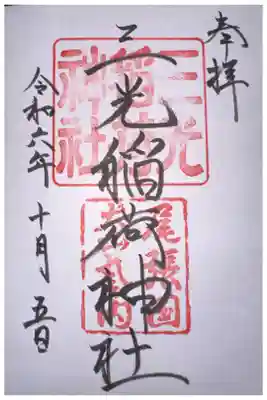 奉拝
三光稲荷神社
令和六年 十月 五日
三光
稲荷
神社
尾張国